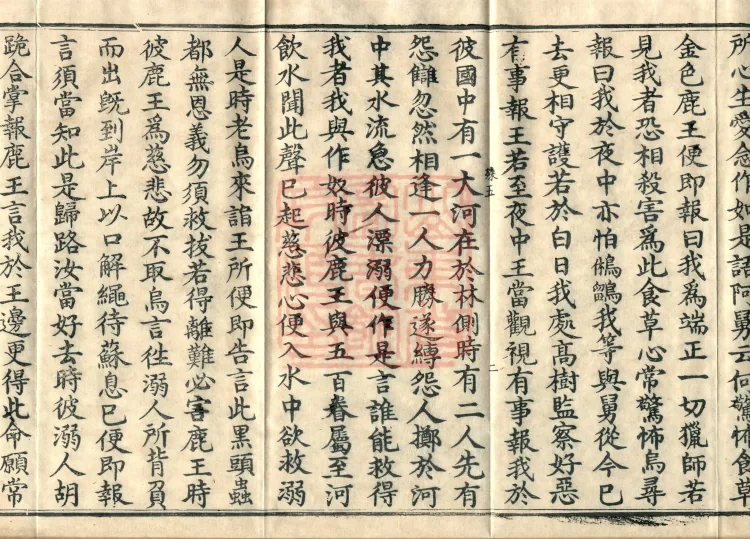 所心生愛念作如是語阿舅云何驚怖食草
金色鹿王便即報曰我爲端正一切獵師若
見我者恐相殺害爲此食草心常驚怖烏尋
報曰我於夜中亦怕鵂鶹我等與舅從今已
去更相守護若於白日我處高樹監察好惡
有事報王若至夜中王當觀視有事報我於
彼國中有一大河在於林側時有二人先有
怨讎忽然相逢一人力勝遂縛怨人擲於河
中其水流急彼人漂溺便作是言誰能救得
我者我與作奴時彼鹿王與五百眷屬至河
飲水聞此聲已起慈悲心便入水中欲救溺
人是時老烏來詣王所便即告言此黑頭蟲
都無恩義勿須救拔若得離難必害鹿王時
彼鹿王爲慈悲故不取烏言往溺人所背負
而出既到岸上以口解繩待蘇息已便即報
言須當知此是歸路汝當好去時彼溺人胡
跪合掌報鹿王言我於王邊更得此命願常